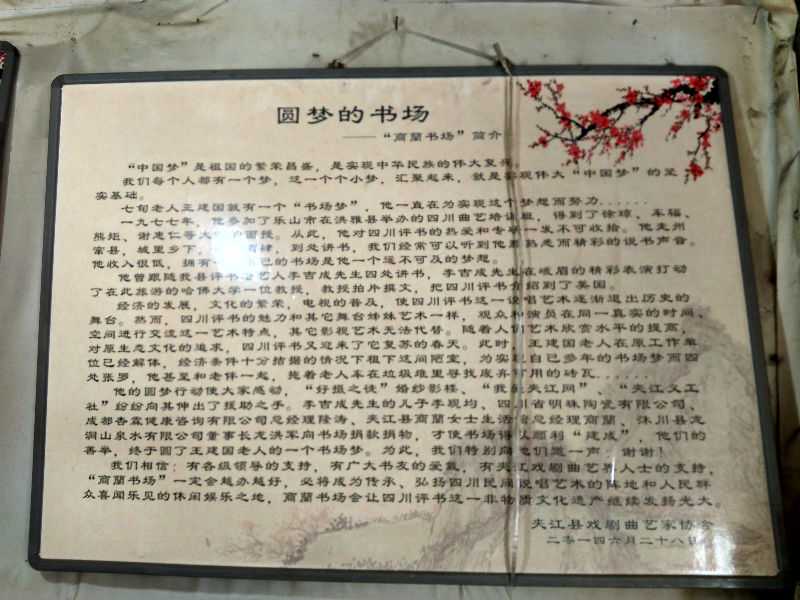 圆梦的书场
——“商蘭书场”简介
“中国梦”是祖国的繁荣昌盛，是实现中华民族的伟大复兴。
我们每个人都有一个梦，这一个个小梦，汇聚起来，就是实现伟大“中国梦”的坚
实基础。
七旬老人王建国就有一个“书场梦”，他一直在为实现这个梦想而努力......
一九七七年，他参加了乐山市在洪雅县举办的四川曲艺培训班，得到了徐璋、车福、
熊炬、谢惠仁等 面授。从此，他对四川评书的热爱和专 一发不可收拾。他走州
窜县，城里乡下， 肆，到处讲书，我们经常可以听到他那熟悉而精彩的说书声音。
他收入很低，拥有 己的书场是他一个遥不可及的梦想。
他曾跟随我县评书 艺人李吉成先生四处讲书，李吉成先生在峨眉的精彩表演打动
了在此旅游的哈佛大学一位教授，教授拍片撰文，把四川评书介绍到了美国。
经济的发展，文化的繁荣，电视的普及，使四川评书这一说唱艺术逐渐退出历史的
舞台。然而，四川评书的魅力和其它舞台姊妹艺术一样，观众和演员在同一真实的时间、
空间进行交流这一艺术特点，其它影视艺术无法代替。随着人们艺术欣赏水平的提高，
对原生态文化的追求，四川评书又迎来了它复苏的春天。此时，王建国老人在原工作单
位已经解体，经济条件十分拮据的情况下租下这间陋室，为实现自已多年的书场梦而四
处张罗，他甚至和老伴一起，拖着老人车在垃圾堆里寻找废弃可用的砖瓦......
他的圆梦行动使大家感动，“好摄之徒”婚纱影楼、“我 夹江网”、“夹江义工
社”纷纷向其伸出了援助之手。李吉成先生的儿子李现均、四川省明珠陶瓷有限公司、
成都杏霖健康咨询有限公司总经理陆涛、夹江县商蘭女士生活 总经理商蘭、沐川县龙
洞山泉水有限公司董事长龙洪军向书场捐款捐物，才使书场得以顺利“建成”，他们的
善举，终于圆了王建国老人的一个书场梦。为此，我们特别向他们道一声：谢谢！
我们相信：有各级领导的支持，有广大书友的爱戴，有夹江戏剧曲艺界人士的支持，
“商蘭书场”一定会越办越好，必将成为传承、弘扬四川民间说唱艺术的阵地和人民群
众喜闻乐见的休闲娱乐之地，商蘭书场会让四川评书这一非物质文化遗产继续发扬光大。
夹江县戏剧曲艺家协会
二零一四六月二十八日